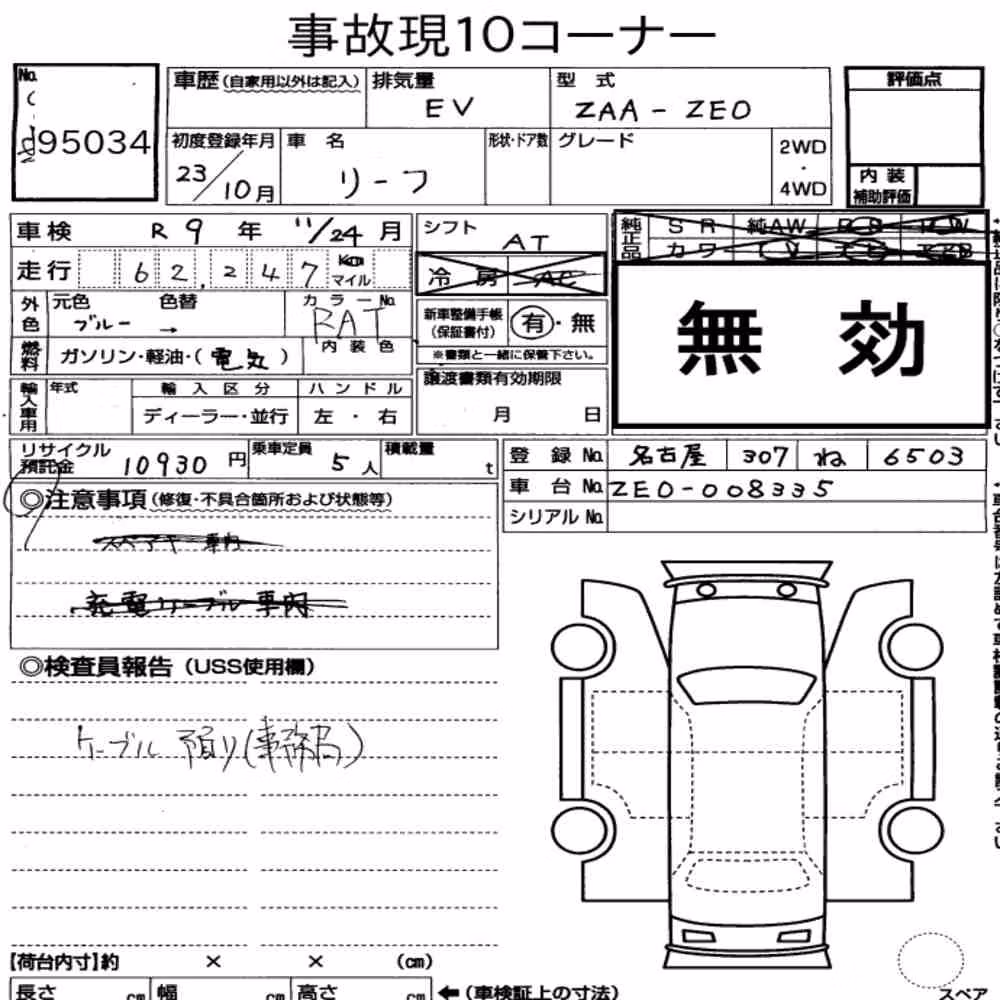 事故現10コーナー
No.
95034
車歴(自家用以外は記入)
排気量
EV
型 式
ZAA-ZEO
評価点
初度登録年月
23/10月
車 名
リーフ
形状・ドア数
グレード
2WD
・
4WD
内 装
補助評価
車検 R 9 年 11/24 月
シフト
AT
純正品
SR 純AW
カワ
走行 6 2, 2 4 7 Km
マイル
冷 房 AC
無 効
外色
元色 色替
ブルー →
カラーNo.
RAT
新車整備手帳
(保証書付)
有・無
※書類と一緒に保管下さい。
燃料
ガソリン・軽油・(電気)
内装色
輸入車用
年式
輸入区分
ディーラー・並行
ハンドル
左 ・ 右
譲渡書類有効期限
月 日
リサイクル
預託金 10930 円
乗車定員
5 人
積載量
t
登 録 No. 名古屋 307 ね 6503
車 台 No. ZEO-008335
シリアル No.
◎注意事項(修復・不具合箇所および状態等)
スペアキー車内
充電ケーブル車内
◎検査員報告(USS使用欄)
ケーブル 預り(事務局)
【荷台内寸】約 × × (cm)
長さ cm 幅 cm 高さ cm ←(車検証上の寸法)
スペア